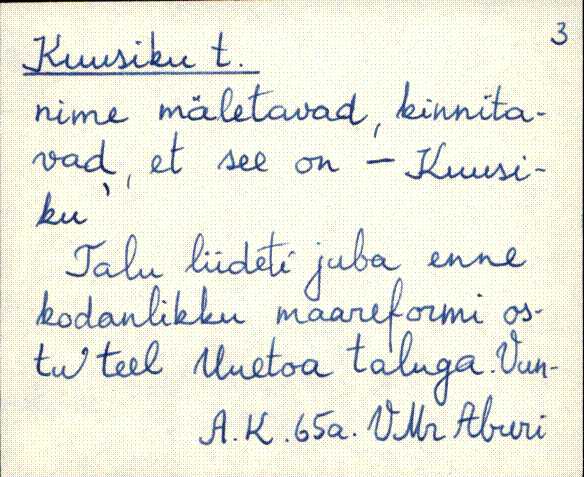 3
Kuusiku t.
nime mäletavad, kinnita-
vad, et see on – Kuusi-
ku
Talu liideti juba enne
kodanlikku maareformi os-
tu teel Uuetoa taluga. Vun-
A.K. 65a. VMr Aburi